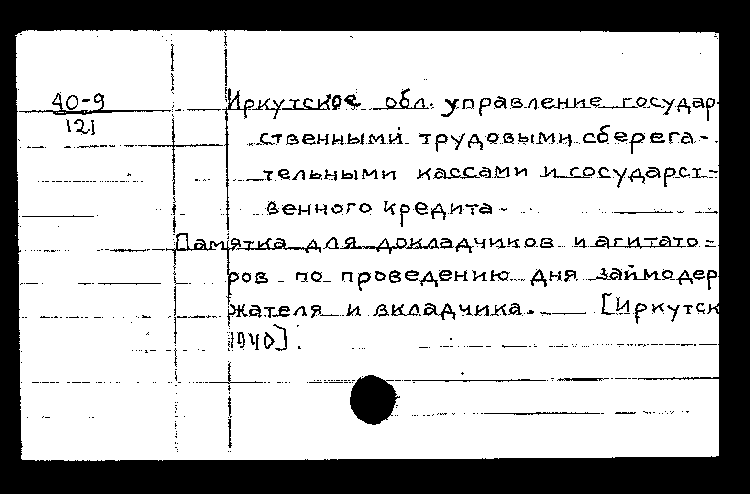 40-9
121
Иркутское обл. управление государ-
ственными трудовыми сберега-
тельными кассами и государст-
венного кредита-
Памятка для докладчиков и агитато-
ров по проведению дня займодер
жателя и вкладчика. [Иркутск
1940].